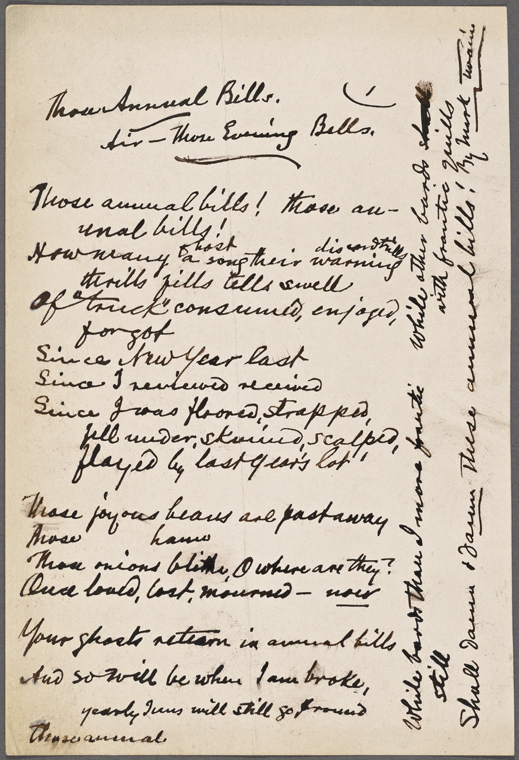 Those Annual Bills.
Air — Those Evening Bells.
Those annual bills! those an-
nual bills!
How many a song their discord trills
host warning
thrills fills tells swell
Of "truck" consumed, enjoyed,
forgot
Since New Year last
Since I reviewed received
Since I was floored, strapped,
fell under, skinned, scalped,
flayed by last year's lot!
Those joyous beans are past away
Those hams
Those onions blithe, O where are they?
Once loved, lost, mourned — now
Your ghosts return in annual bills
And so 'twill be when I am broke,
yearly duns will still go around
Those annual
While bards than I more frantic
still
While other bards shall
with frantic quills
Shall damn & damn these annual bills! By Mark Twain